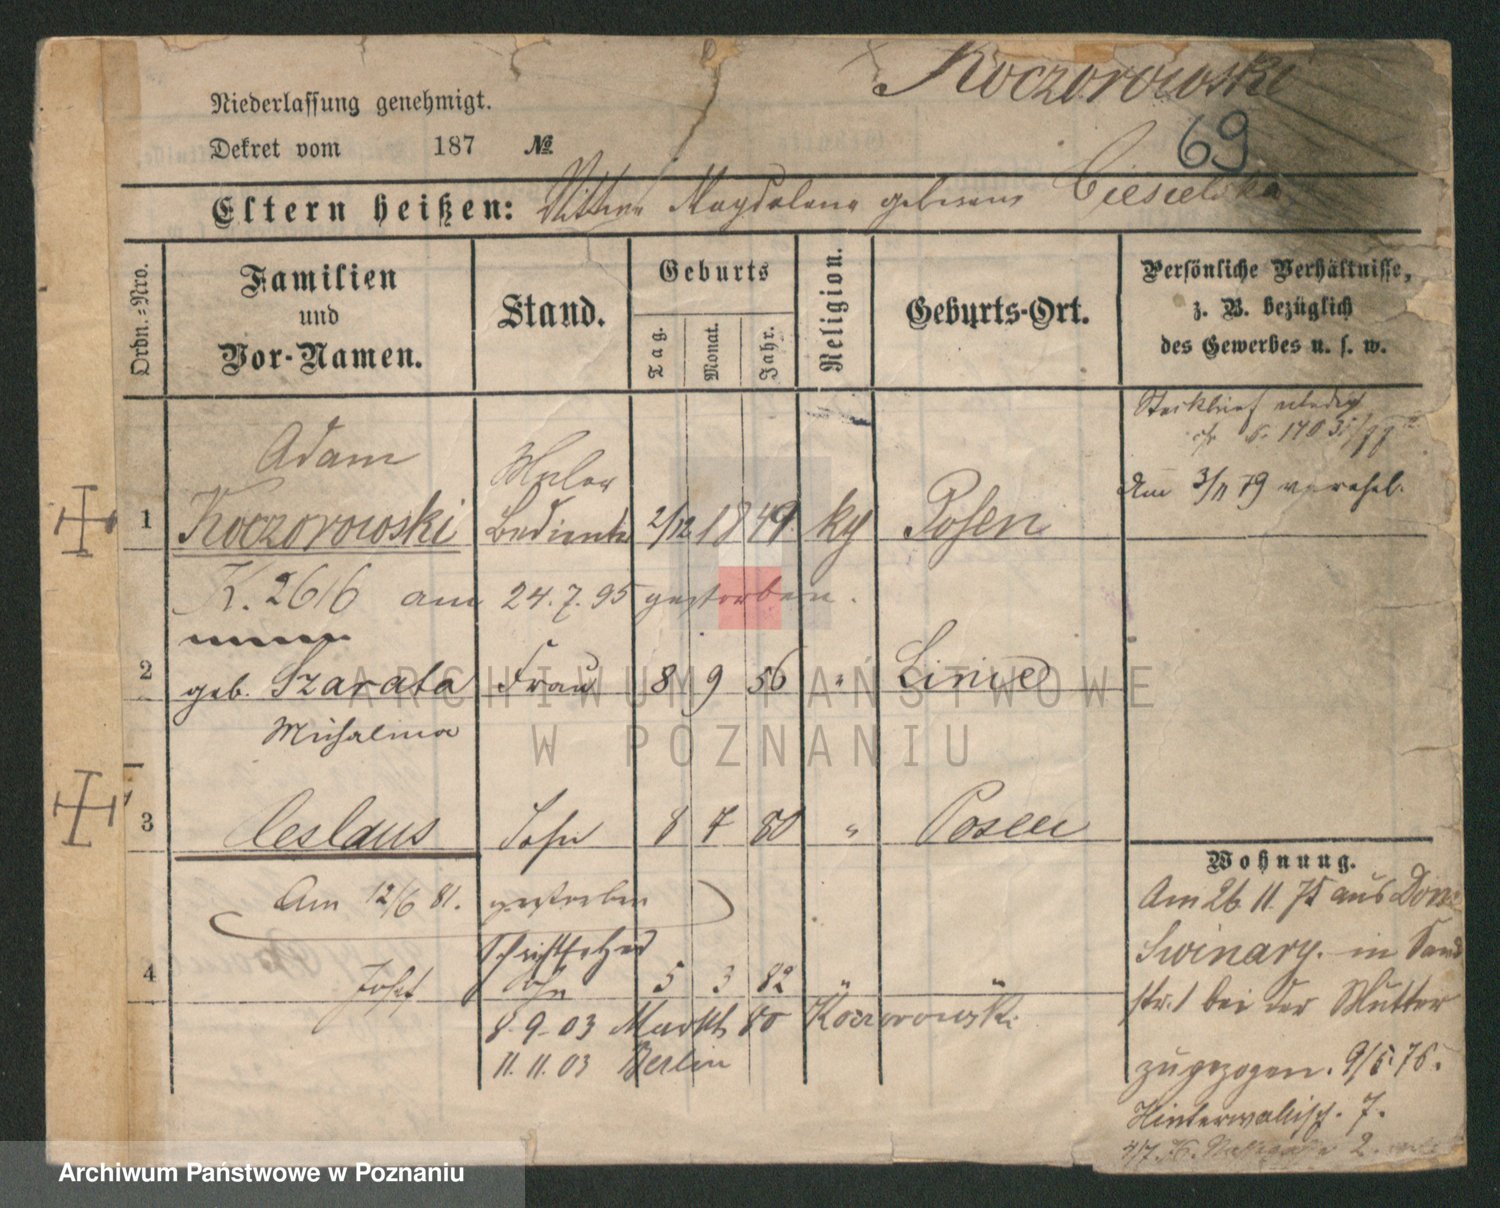 Koczorowski
69
Niederlassung genehmigt.
Dekret vom 187 №
Eltern heißen: Magdalena geborene Ciesielska
Ordn.-Nro.
Familien und Vor-Namen.
Stand.
Geburts
Tag.
Monat.
Jahr.
Religion.
Geburts-Ort.
Persönliche Verhältnisse,
z. B. bezüglich
des Gewerbes u. s. w.
Steckbrief erledigt
Am 3/11 79 verehel.
Adam
1 Koczorowski Bediente 2/12 1849. kg Posen
K. 2616 am 24.7.95 gestorben.
2 geb. Szarata Frau 8 9 56 " Linie
Michalina
3 Ceslaus Sohn 8 7 80 " Posen
Am 12/6 81. gestorben
Schriftsetzer
4 Josef Sohn 5 3 82 " "
8.9.03 Markt 80 Koczorowski
11.11.03 Berlin
Wohnung.
Am 26.11.75 aus Dom.
Swinary. in Sand
str. 1 bei der Mutter
zugezogen. 9/5.76.
Hinterwallisch. 7.
ARCHIWUM PAŃSTWOWE
W POZNANIU
Archiwum Państwowe w Poznaniu